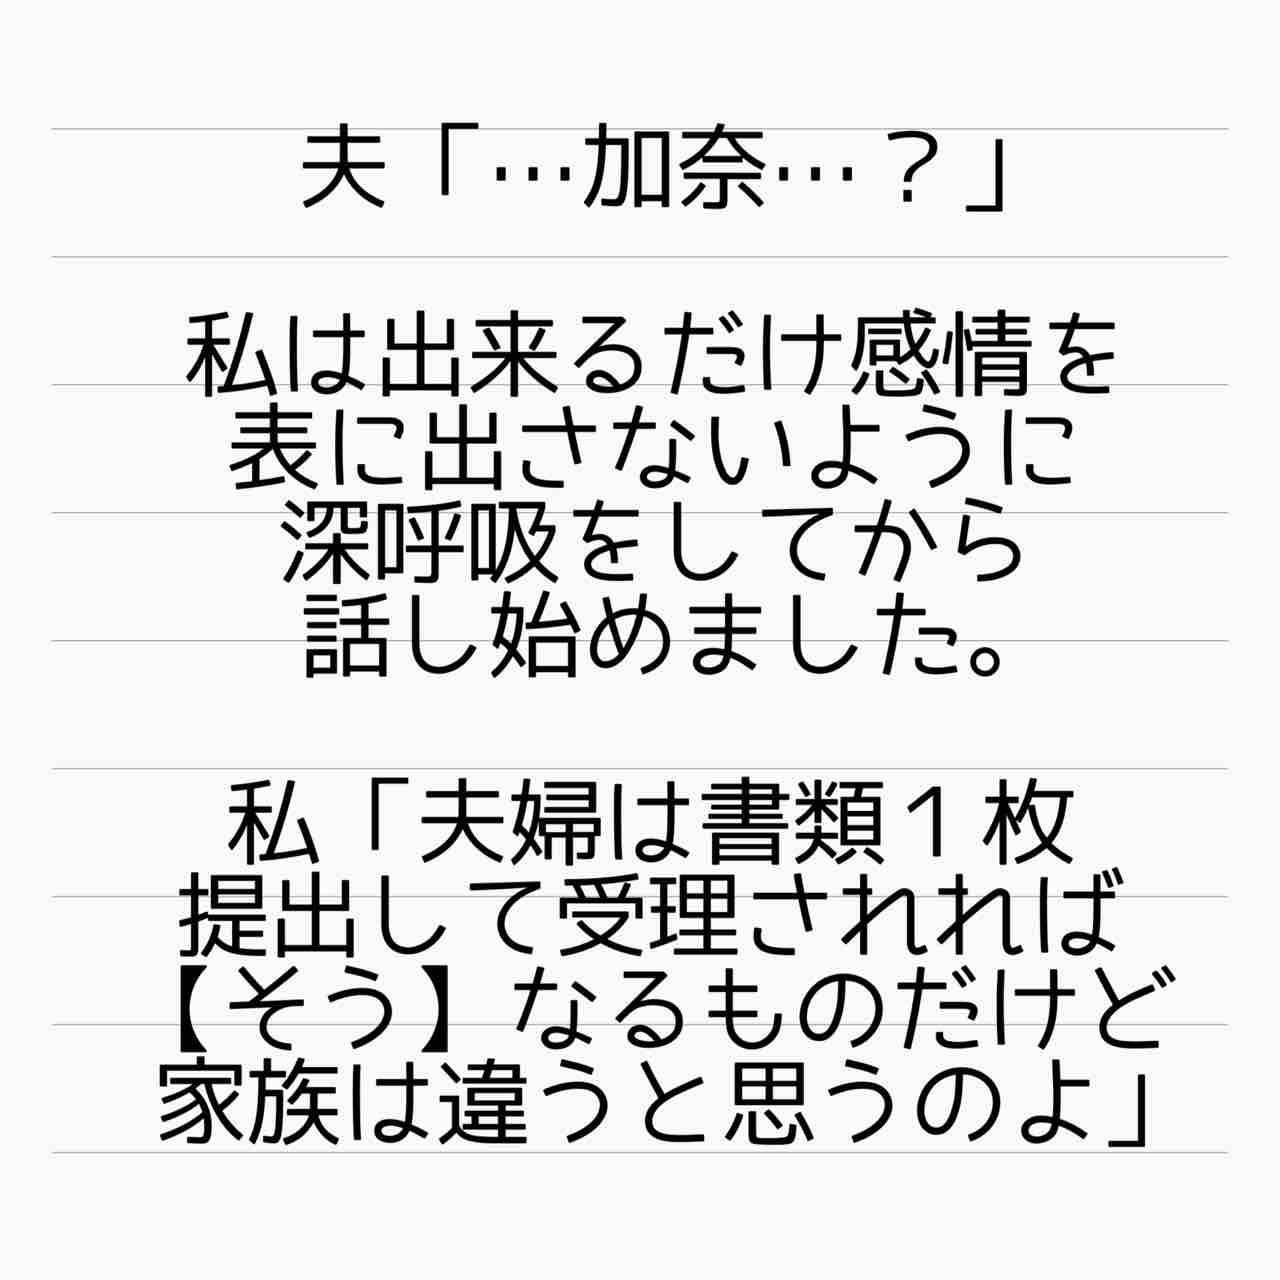 夫「…加奈…？」
私は出来るだけ感情を
表に出さないように
深呼吸をしてから
話し始めました。
私「夫婦は書類１枚
提出して受理されれば
【そう】なるものだけど
家族は違うと思うのよ」